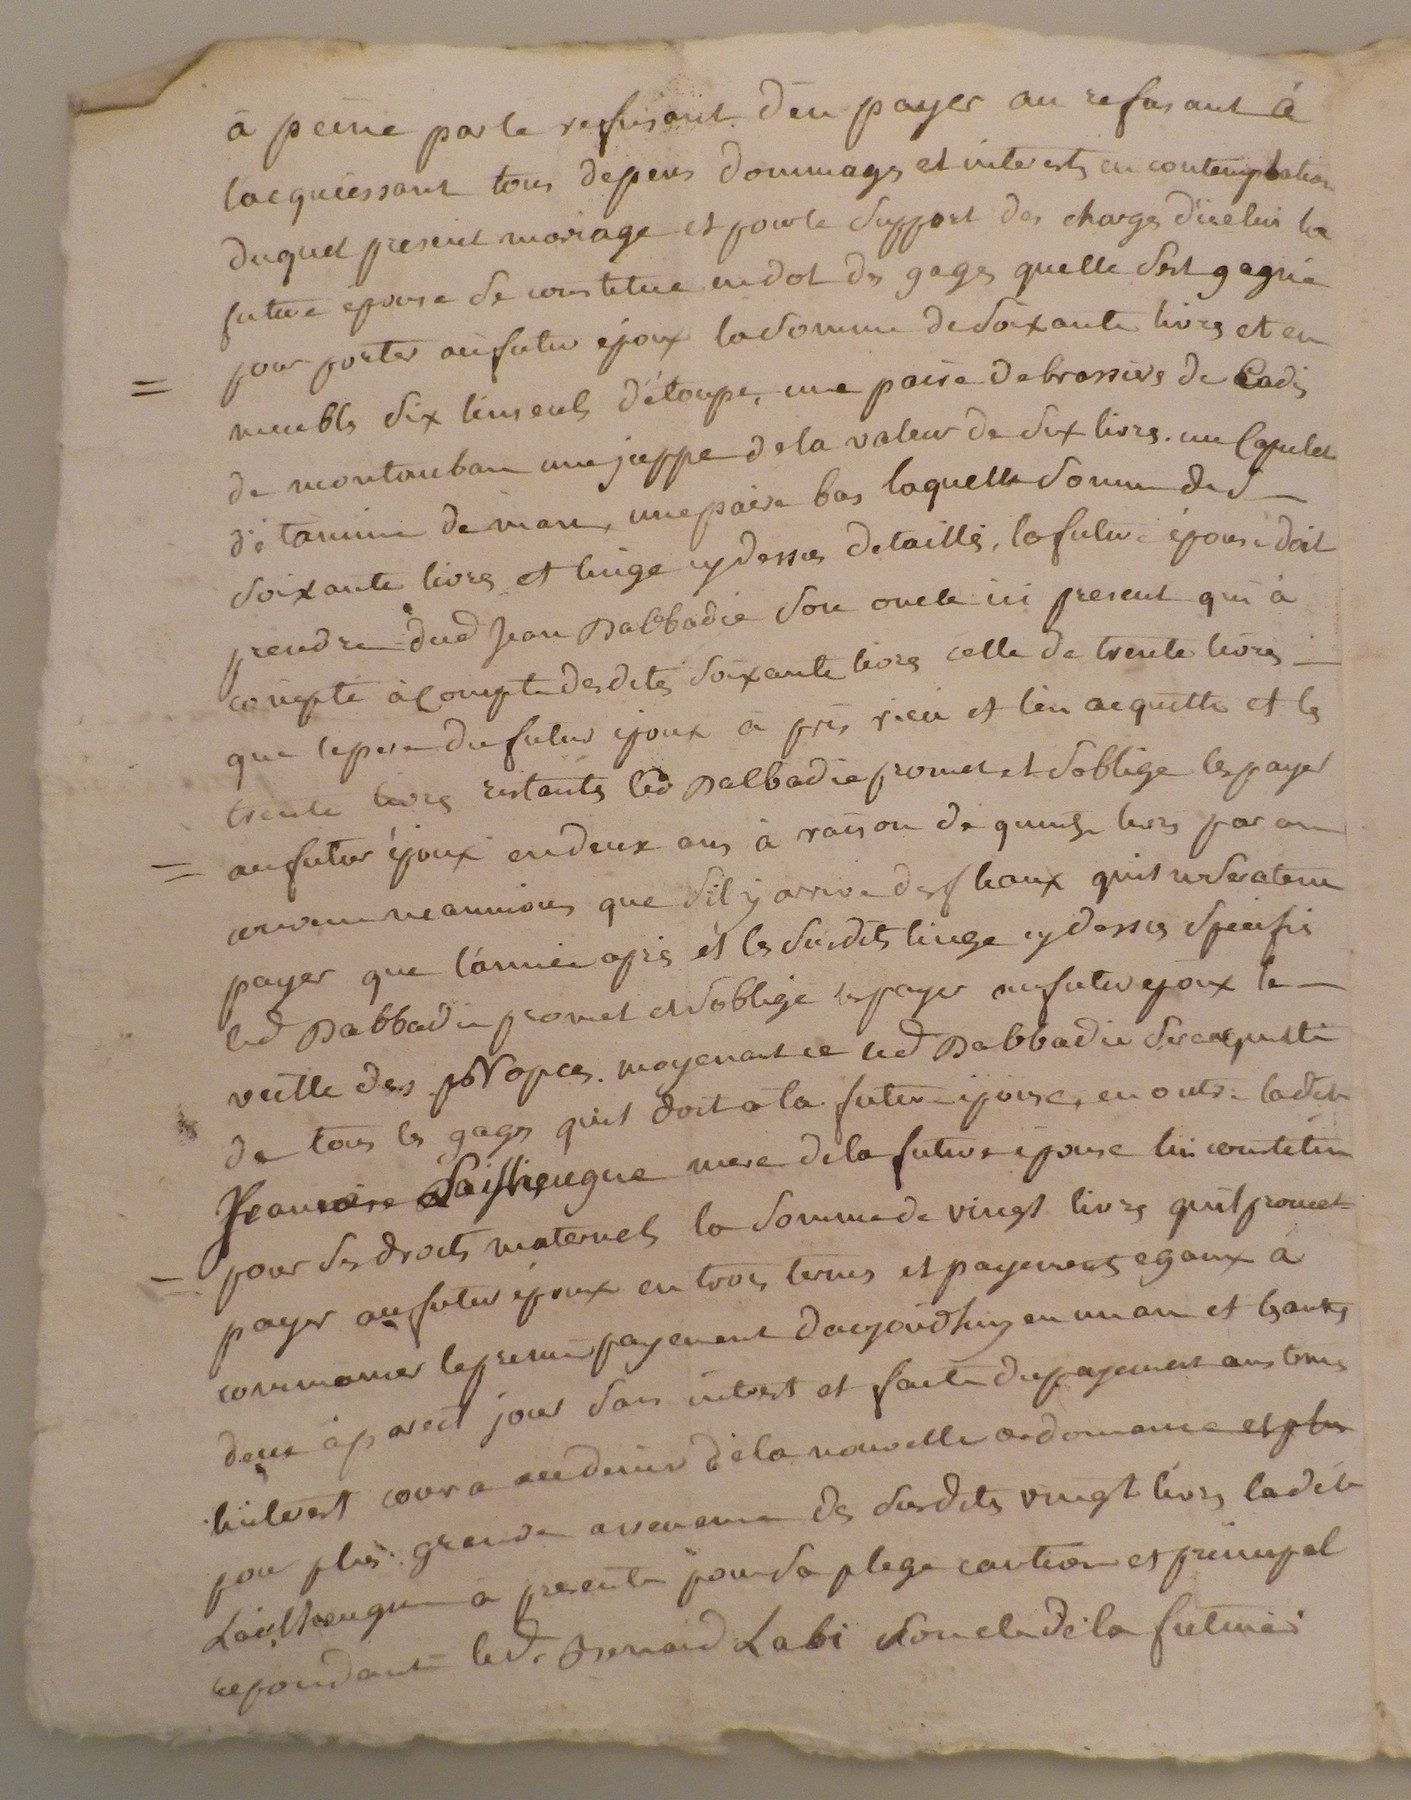 à peine par le refusant d'en payer au refusant à
l'acquiessant tous depens dommages et interests en contemplation
duquel present mariage et pour le support des charges d'icelui la
future epouse se constitue en dot des gages quelle s'est gagné
pour porter au futur epoux la somme de soixante livres et en
meubles six linseuls d'étoupe, une paire de brassiere de Cadis
de montauban une juppe de la valeur de six livres. un Capulet
d'étamine de mans, une paire bas laquelle somme de s
soixante livres et linge cy dessus detaillés, la future épouse doit
prendre dud Jean Dabbadie son oncle ici present qui a
compté à Compte desdites soixante livres celle de trente livres
que le pere du futur epoux a pris et l'en acquitte et les
trente livres restantes led Dalbadie promet et s'oblige les payer
au futur époux en deux ans à raison de quinze livres par an
neanmoins que s'il y arrive des fleaux quil ne sera tenu
payer que l'année après et les susdits linge cy dessus specifié
led Dabbadie promet et s'oblige les payer au futur epoux la
veille des Nopces. moyenant ce led Dabbadie sera quitte
de tous les gages quil doit a la future epouse, en outre ladite
mere de la future epouse lui constitue
pour ses droits maternels la somme de vingt livres quil promet
payer au futur époux en trois termes et payements egaux à
commancer le premier payement d'aujourdhuy en un an et les autres
deux à pareil jour sans interest et faute du payement aux termes
l'interest courra au denier de la nouvelle ordonnance et plus
pour plus grande assurence des susdites vingt livres ladite
a presenté pour sa plege caution et principal
repondant led. Bernard Labi oncle de la future